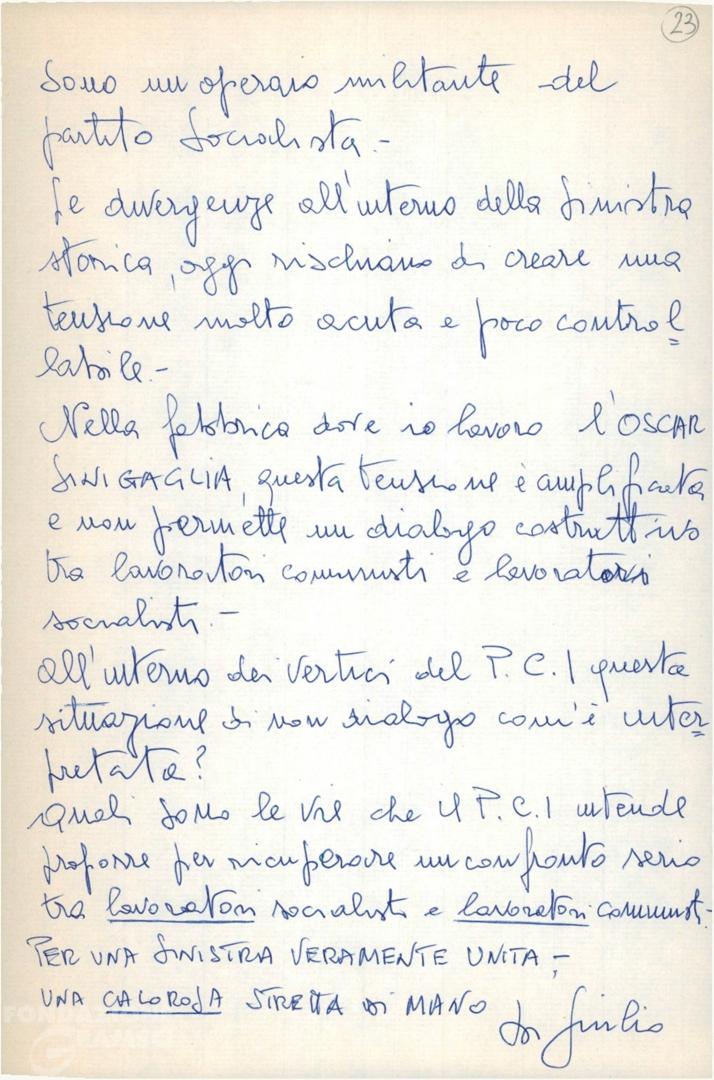 23
Sono un operaio militante del
partito Socialista.-
Le divergenze all'interno della Sinistra
storica, oggi rischiano di creare una
tensione molto acuta e poco control=
labile.-
Nella fabbrica dove io lavoro l'OSCAR
SINIGAGLIA, questa tensione è amplificata
e non permette un dialogo costruttivo
tra lavoratori comunisti e lavoratori
socialisti.-
All'interno dei vertici del P.C.I questa
situazione di non dialogo com'è inter=
pretata?
Quali sono le vie che il P.C.I intende
proporre per ricuperare un confronto serio
tra lavoratori socialisti e lavoratori comunisti.
PER UNA SINISTRA VERAMENTE UNITA -
UNA CALOROSA STRETTA DI MANO
Giulio
FONDAZIONE